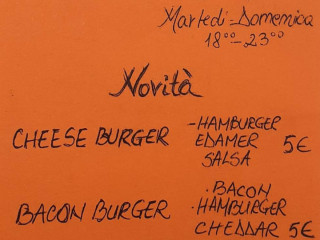 Martedì-Domenica
18°°-23°°
Novità
CHEESE BURGER -HAMBURGER
EDAMER 5€
SALSA
BACON BURGER ·BACON
·HAMBURGER
CHEDDAR 5€